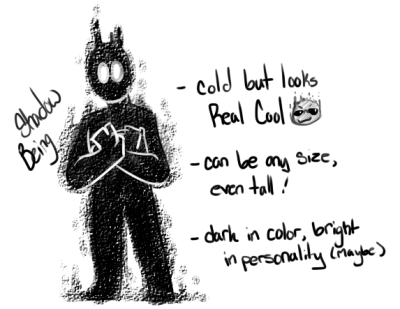 Shadow
Being
- cold but looks
Real Cool
- can be any size,
even tall!
- dark in color, bright
in personality (Maybe)